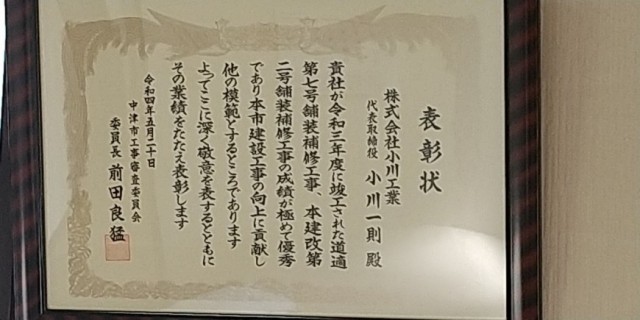 表彰状
株式会社小川工業
代表取締役 小川一則 殿
貴社が令和三年度に竣工された道適
第七号舗装補修工事 本建改第
二号舗装補修工事の成績が極めて優秀
であり本市建設工事の向上に貢献し
他の模範とするところであります
よってここに深く敬意を表するとともに
その業績をたたえ表彰します
令和四年五月二十日
中津市工事審査委員会
委員長 前田良猛